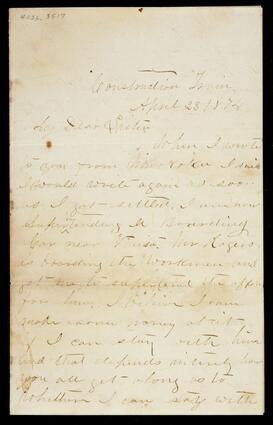 4026.3517
Construction Train,
April 23 187
My Dear Sister
When I wrote
to you from I said
I would write again as soon
as I got settled, I am now
Superintending a Boarding
Car near Mr Rogers,
is boarding the workmen and
got me to superintend the
for him. I believe I can
make some money at it
if I can stay with him
and that depends entirely how
you all get along as to
whether I can stay with